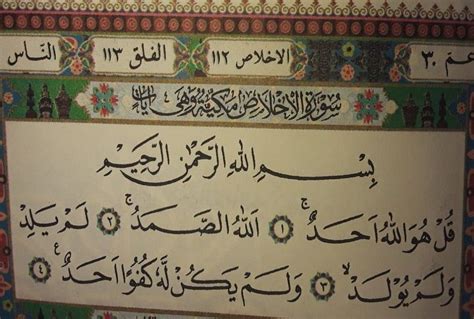 عم ٣٠ الاخلاص ١١٢ الفلق ١١٣ الناس
سُورَةُ الْإِخْلَاصِ مَكِّيَّةٌ وَهِيَ
بِسْمِ اللهِ الرَّحْمٰنِ الرَّحِيْمِ
قُلْ هُوَ اللهُ اَحَدٌ ۚ ۝١ اَللهُ الصَّمَدُ ۚ ۝٢ لَمْ يَلِدْ
وَلَمْ يُوْلَدْ ۙ ۝٣ وَلَمْ يَكُنْ لَّهٗ كُفُوًا اَحَدٌ ۝٤ ع